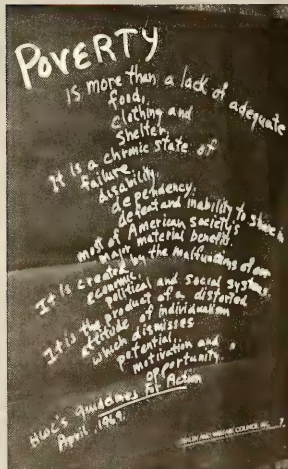 POVERTY
is more than a lack of adequate
food,
clothing and
shelter.
It is a chronic state of
failure,
disability,
dependency,
defeat and inability to share in
most of American society's
major material benefits.
It is created by the malfunctions of our
economic,
political and social systems.
It is the product of a distorted
attitude of individualism
which dismisses
potential,
motivation and
opportunity.
HWC's guidelines for Action
April, 1969.
HEALTH AND WELFARE COUNCIL INC.